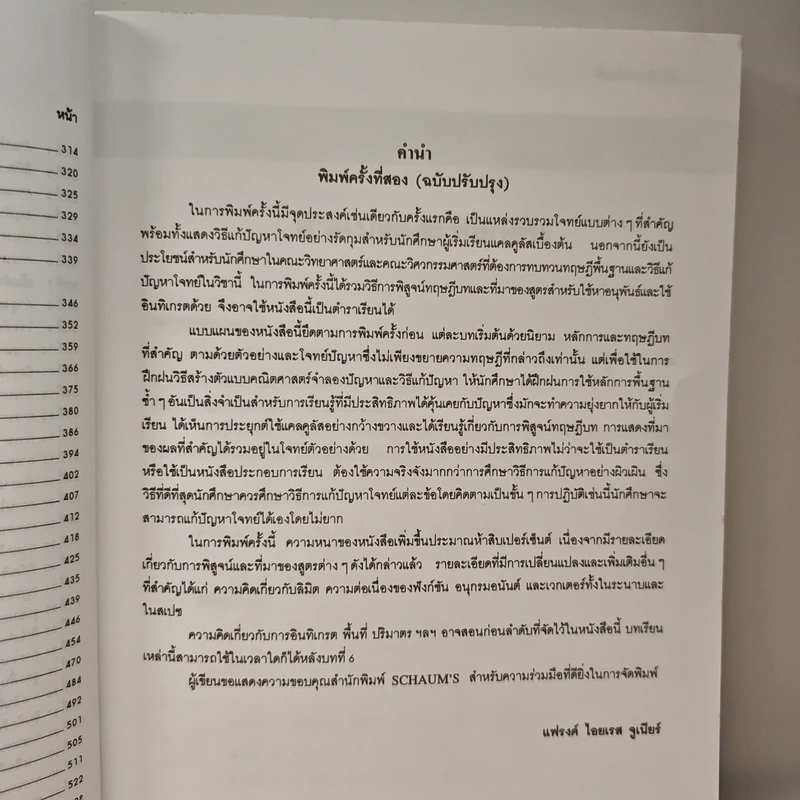 หน้า
314
320
325
329
334
339
346
352
359
366
375
380
386
394
402
407
412
418
425
435
439
446
454
470
484
492
501
505
511
522
คำนำ
พิมพ์ครั้งที่สอง (ฉบับปรับปรุง)
ในการพิมพ์ครั้งนี้มีจุดประสงค์เช่นเดียวกับครั้งแรกคือ เป็นแหล่งรวบรวมโจทย์แบบต่าง ๆ ที่สำคัญ
พร้อมทั้งแสดงวิธีแก้ปัญหาโจทย์อย่างรัดกุมสำหรับนักศึกษาผู้เริ่มเรียนแคลคูลัสเบื้องต้น นอกจากนี้ยังเป็น
ประโยชน์สำหรับนักศึกษาในคณะวิทยาศาสตร์และคณะวิศวกรรมศาสตร์ที่ต้องการทบทวนทฤษฎีพื้นฐานและวิธีแก้
ปัญหาโจทย์ในวิชานี้ ในการพิมพ์ครั้งนี้ได้รวมวิธีการพิสูจน์ทฤษฎีบทและที่มาของสูตรสำหรับใช้หาอนุพันธ์และใช้
อินทิเกรตด้วย จึงอาจใช้หนังสือนี้เป็นตำราเรียนได้
แบบแผนของหนังสือนี้ยึดตามการพิมพ์ครั้งก่อน แต่ละบทเริ่มต้นด้วยนิยาม หลักการและทฤษฎีบท
ที่สำคัญ ตามด้วยตัวอย่างและโจทย์ปัญหาซึ่งไม่เพียงขยายความทฤษฎีที่กล่าวถึงเท่านั้น แต่เพื่อใช้ในการ
ฝึกฝนวิธีสร้างตัวแบบคณิตศาสตร์จำลองปัญหาและวิธีแก้ปัญหา ให้นักศึกษาได้ฝึกฝนการใช้หลักการพื้นฐาน
ซ้ำ ๆ อันเป็นสิ่งจำเป็นสำหรับการเรียนรู้ที่มีประสิทธิภาพได้คุ้นเคยกับปัญหาซึ่งมักจะทำความยุ่งยากให้กับผู้เริ่ม
เรียน ได้เห็นการประยุกต์ใช้แคลคูลัสอย่างกว้างขวางและได้เรียนรู้เกี่ยวกับการพิสูจน์ทฤษฎีบท การแสดงที่มา
ของผลที่สำคัญได้รวมอยู่ในโจทย์ตัวอย่างด้วย การใช้หนังสืออย่างมีประสิทธิภาพไม่ว่าจะใช้เป็นตำราเรียน
หรือใช้เป็นหนังสือประกอบการเรียน ต้องใช้ความจริงจังมากกว่าการศึกษาวิธีการแก้ปัญหาอย่างผิวเผิน ซึ่ง
วิธีที่ดีที่สุดนักศึกษาควรศึกษาวิธีการแก้ปัญหาโจทย์แต่ละข้อโดยคิดตามเป็นขั้น ๆ การปฏิบัติเช่นนี้นักศึกษาจะ
สามารถแก้ปัญหาโจทย์ได้เองโดยไม่ยาก
ในการพิมพ์ครั้งนี้ ความหนาของหนังสือเพิ่มขึ้นประมาณห้าสิบเปอร์เซ็นต์ เนื่องจากมีรายละเอียด
เกี่ยวกับการพิสูจน์และที่มาของสูตรต่าง ๆ ดังได้กล่าวแล้ว รายละเอียดที่มีการเปลี่ยนแปลงและเพิ่มเติมอื่น ๆ
ที่สำคัญได้แก่ ความคิดเกี่ยวกับลิมิต ความต่อเนื่องของฟังก์ชัน อนุกรมอนันต์ และเวกเตอร์ทั้งในระนาบและ
ในสเปซ
ความคิดเกี่ยวกับการอินทิเกรต พื้นที่ ปริมาตร ฯลฯ อาจสอนก่อนลำดับที่จัดไว้ในหนังสือนี้ บทเรียน
เหล่านี้สามารถใช้ในเวลาใดก็ได้หลังบทที่ 6
ผู้เขียนขอแสดงความขอบคุณสำนักพิมพ์ SCHAUM'S สำหรับความร่วมมือที่ดียิ่งในการจัดพิมพ์
แฟรงค์ ไอยเรส จูเนียร์